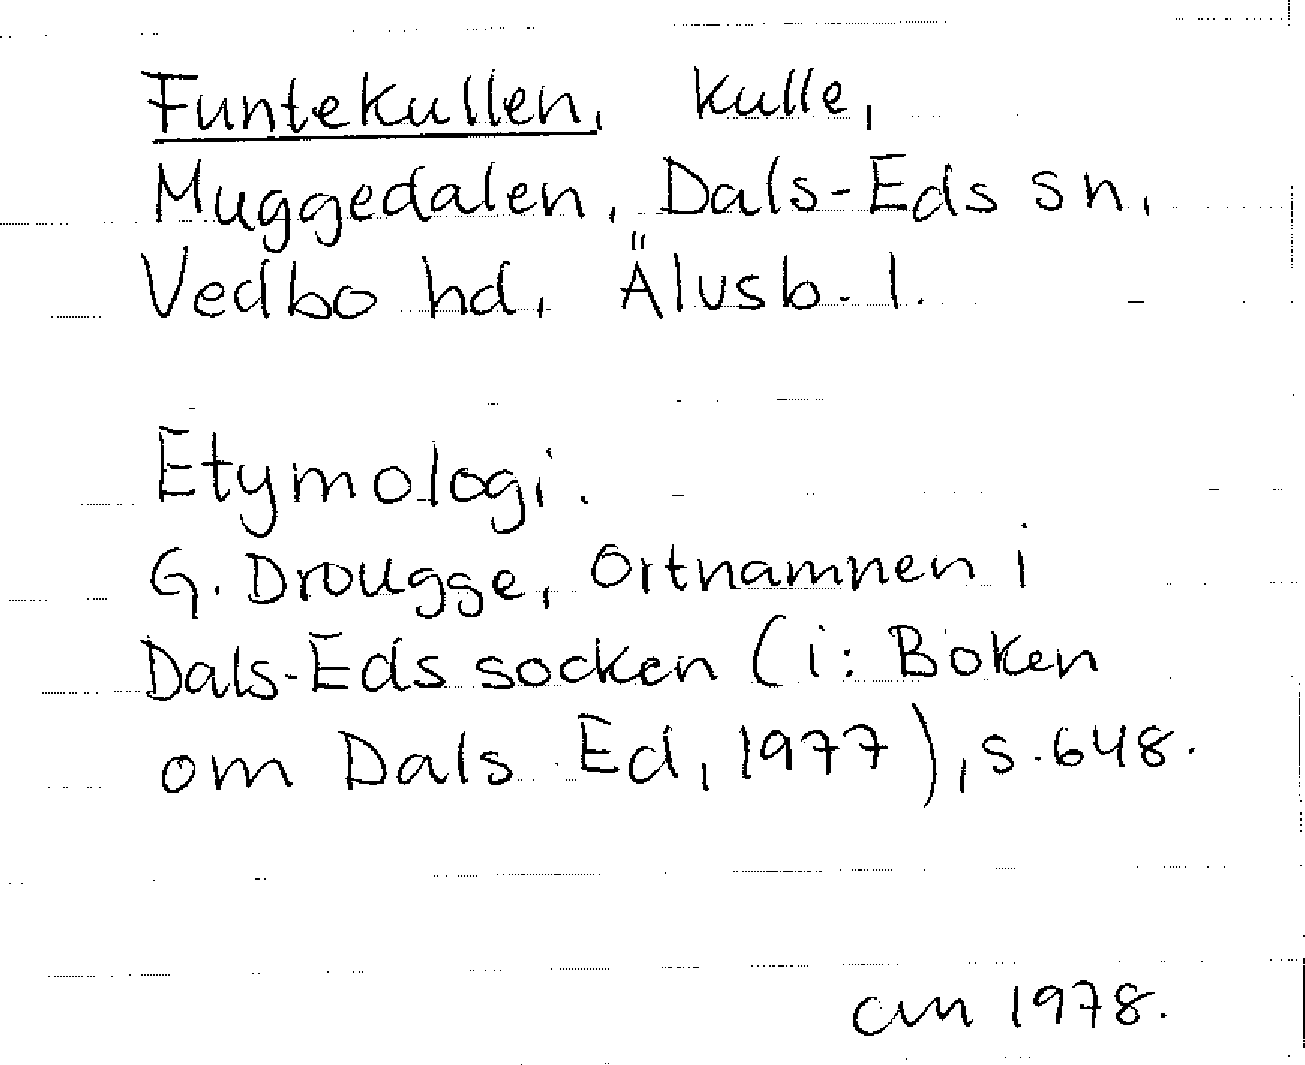 Funtekullen, kulle,
Muggedalen, Dals-Eds sn,
Vedbo hd, Älvsb. l.
Etymologi.
G. Drougge, Ortnamnen i
Dals-Eds socken (i: Boken
om Dals Ed, 1977), s. 648.
1978.